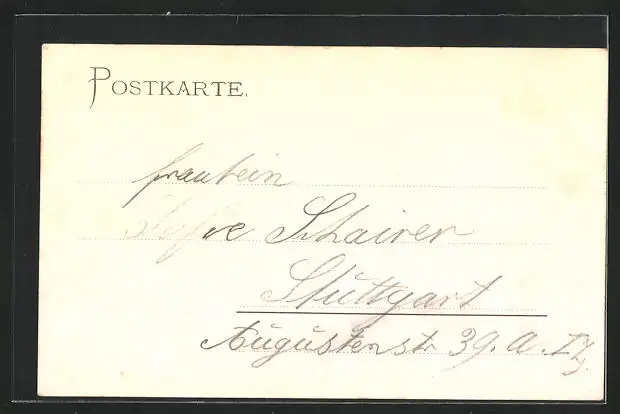 POSTKARTE.
fraulein
Schairer
Stuttgart
Augustenstr 39. A.